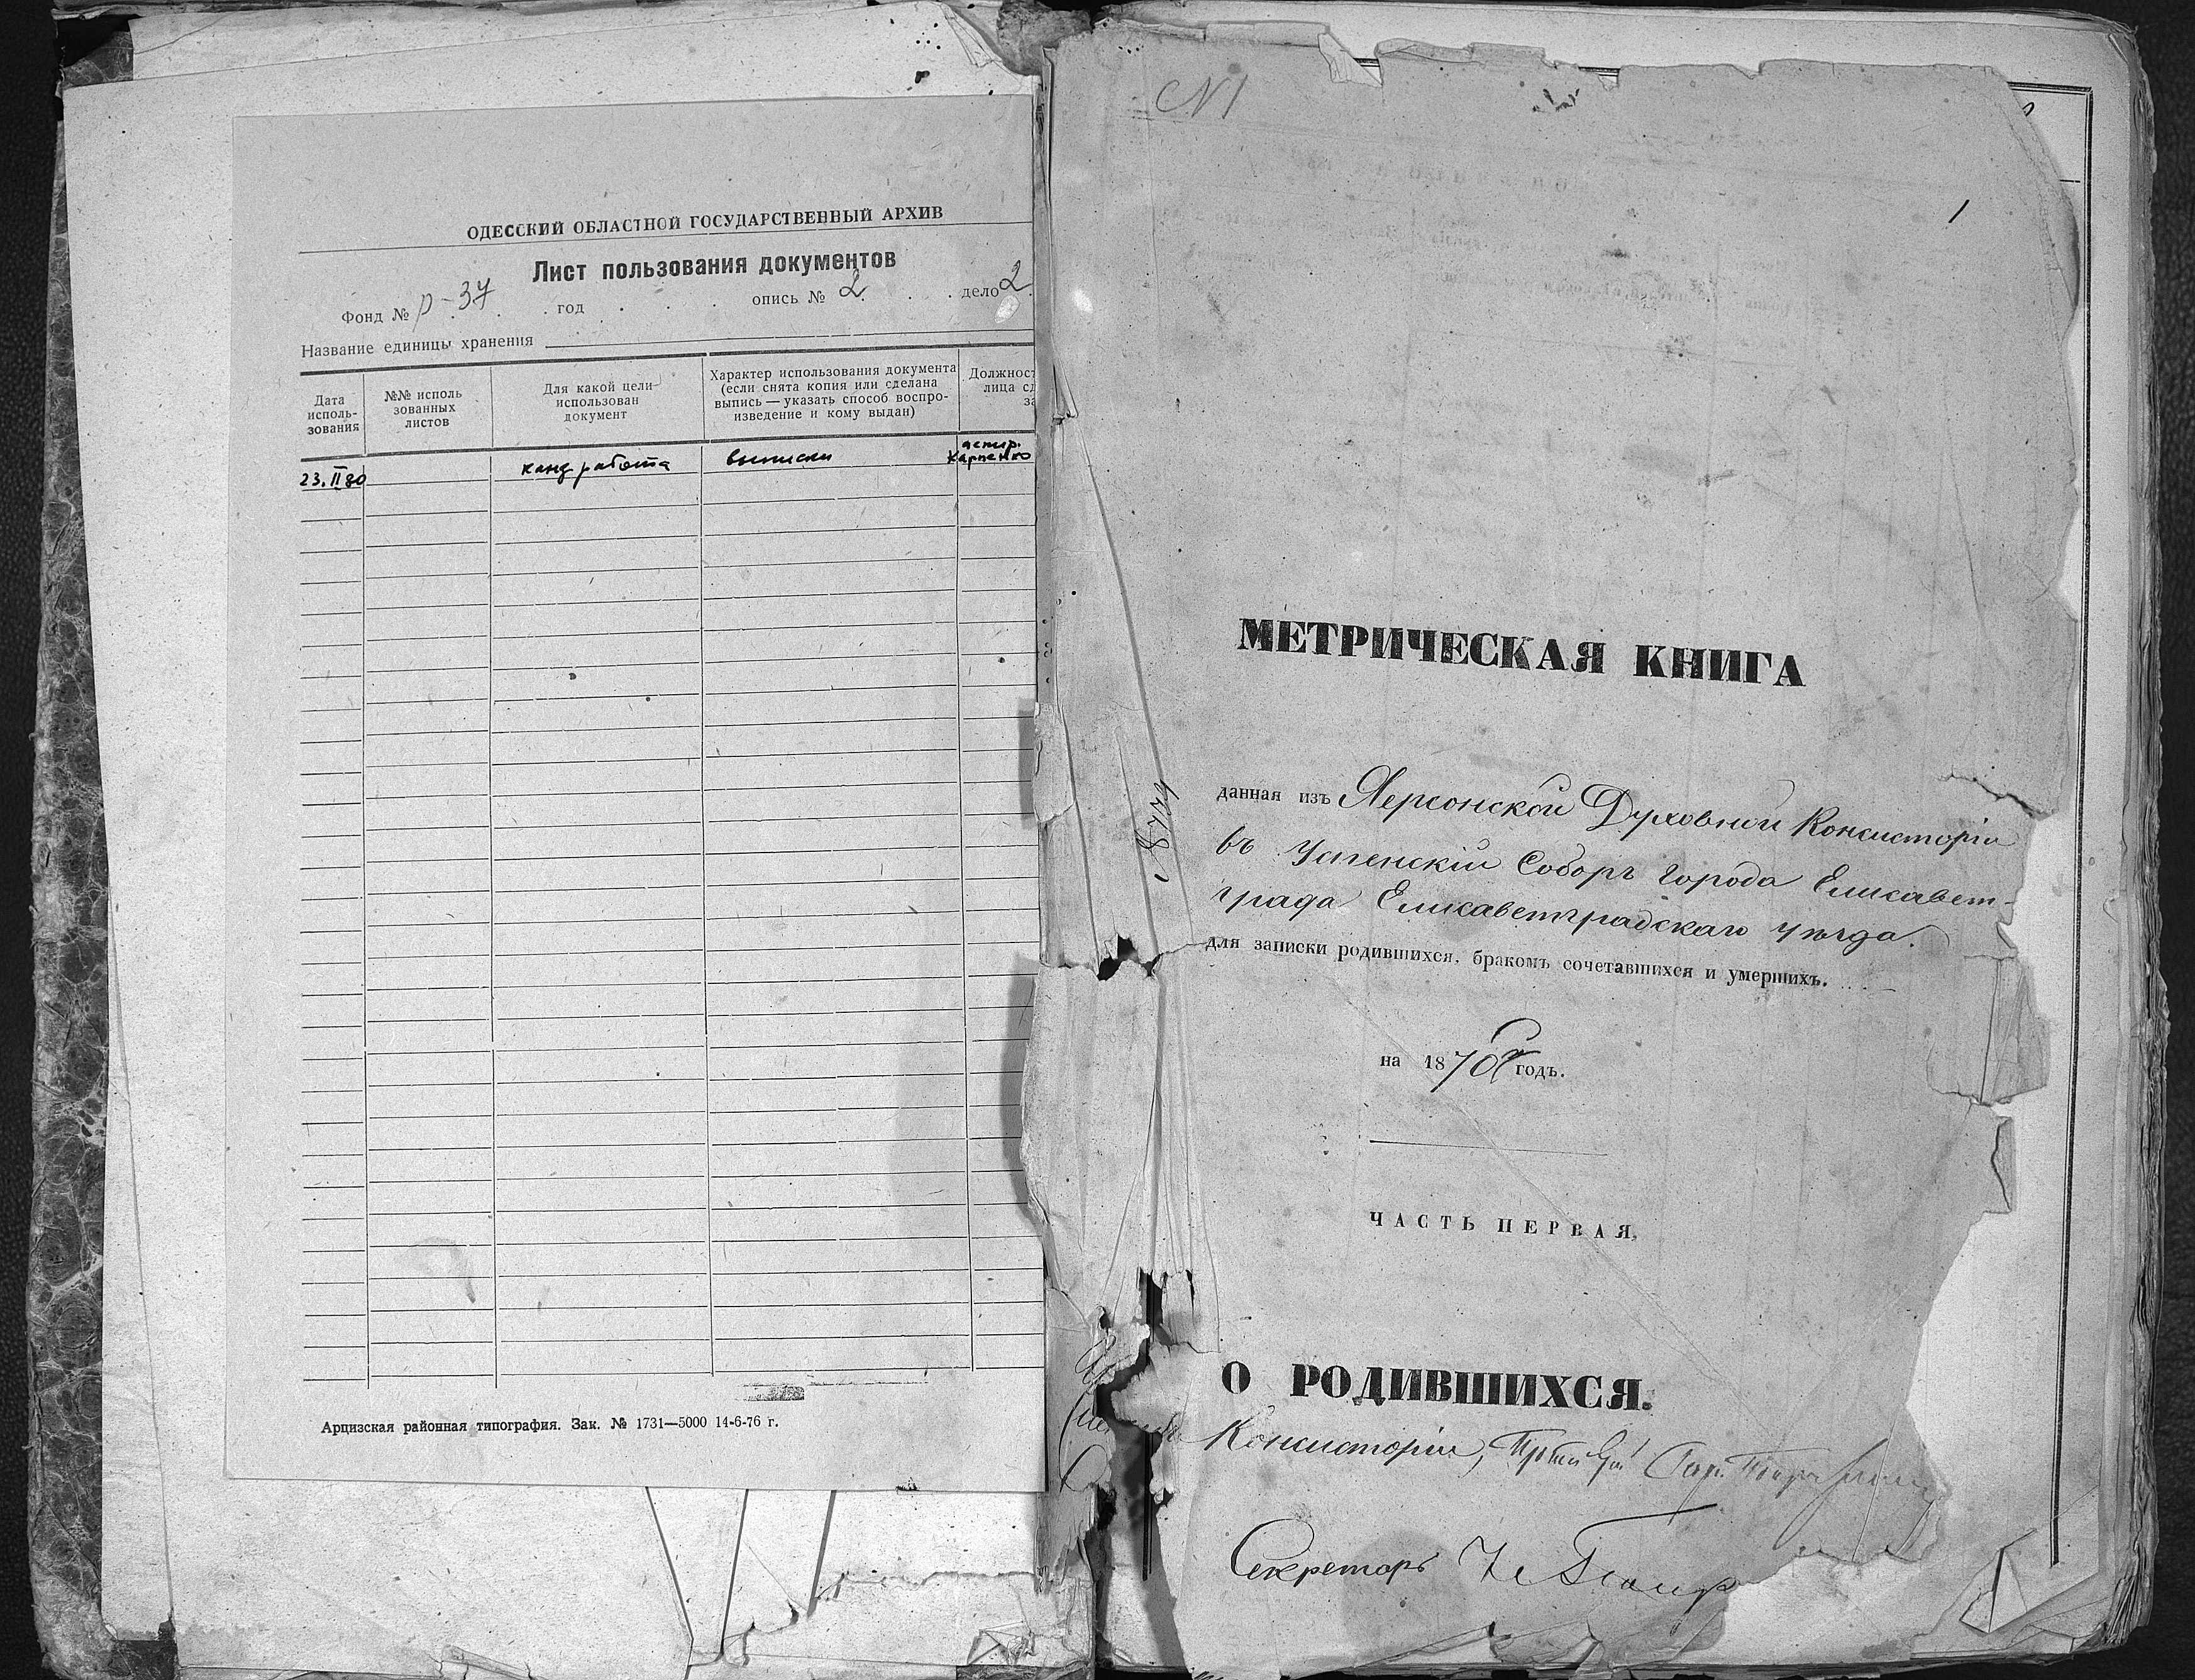 ОДЕССКИЙ ОБЛАСТНОЙ ГОСУДАРСТВЕННЫЙ АРХИВ
Лист пользования документов
Фонд № Р-37 . год . . . опись № 2 . . . дело 2
Название единицы хранения
Дата исполь-зования
№№ исполь зованных листов
Для какой цели использован документ
Характер использования документа (если снята копия или сделана выпись — указать способ воспро-изведение и кому выдан)
Должност
лица сд
за
23.II 80 канд работа выписки аспир. Карпенко
Арцизская районная типография. Зак. № 1731—5000 14-6-76 г.
N1
1
МЕТРИЧЕСКАЯ КНИГА
данная изъ Херсонской Духовной Консисторіи
въ Успенскій Соборъ города Елисавет-
града Елисаветградскаго уѣзда.
для записки родившихся, бракомъ сочетавшихся и умершихъ.
на 1870 годъ.
ЧАСТЬ ПЕРВАЯ,
О РОДИВШИХСЯ.
Консисторіи,
Секретарь